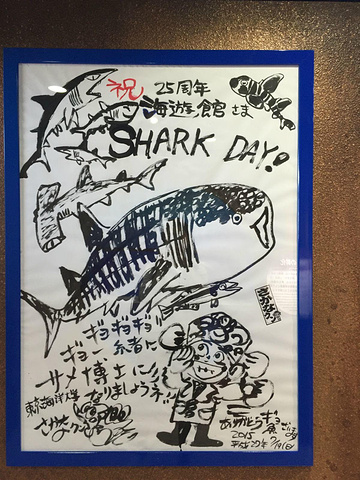 祝 25周年
海遊館さま
SHARK DAY!
ギョギョギョ!!
ギョー
サメ博士に!!
なりましょうネ!!
東京海洋大学
さかなクン
ありがとうギョざいます
2015
平成27年 7/19(日)